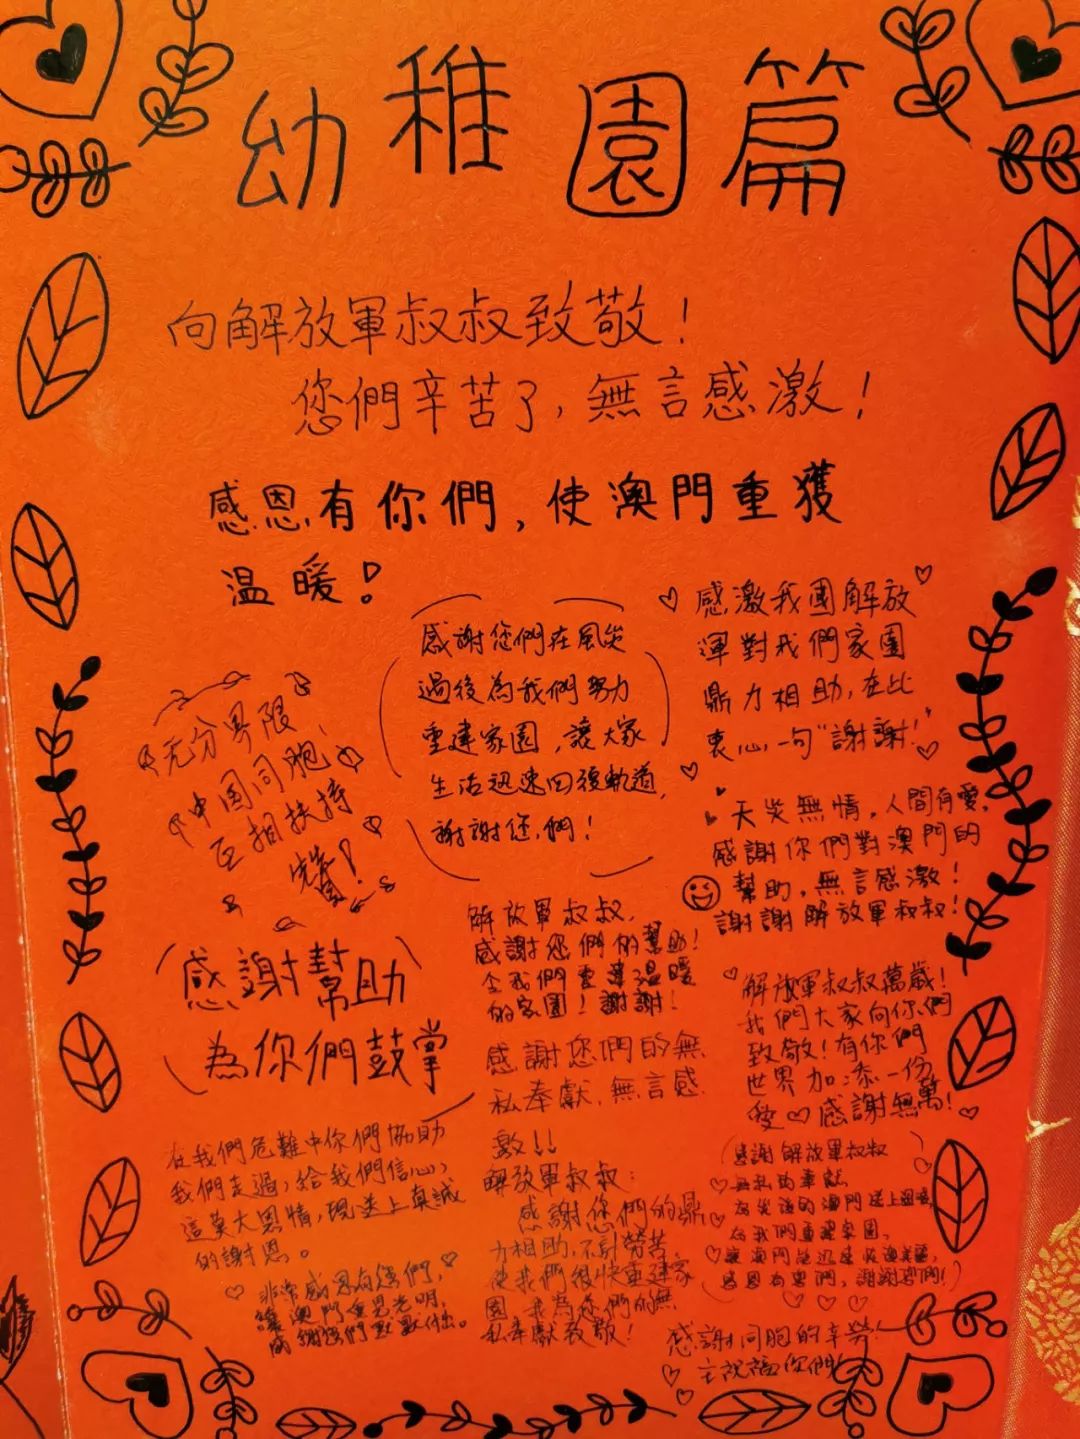 幼稚園篇
向解放軍叔叔致敬！
您們辛苦了，無言感激！
感恩有你們，使澳門重獲
温暖！
感謝您們在風災
過後為我們努力
重建家園，讓大家
生活迅速回復軌道，
謝謝您們！
感激我國解放
渾對我們家園
鼎力相助，在此
衷心一句“謝謝！”
无分界限，
中国同胞
互相扶持
天災無情，人間有愛，
感謝你們對澳門的
幫助，無言感激！
謝謝解放軍叔叔！
感謝幫助
為你們鼓掌
解放軍叔叔，
感謝您們的幫助！
令我們重建温暖
的家園！謝謝！
解放軍叔叔萬歲！
我們大家向你們
致敬！有你們
世界加添一份
愛♡感謝無萬！
感謝您們的無
私奉獻，無言感
激！！
在我們危難中你們協助
我們走過，給我們信心，
這莫大恩情，現送上真誠
的謝恩。
解放軍叔叔：
感謝您們的鼎
力相助，不計勞苦
使我們很快重建家
園，我為您們的無
私奉獻致敬！
感謝解放軍叔叔
無私的奉獻
為災後的澳門送上温暖，
為我們重建家園，
讓澳門能迅速恢復美麗，
感恩有您們，謝謝您們！
非常感恩有您們，
讓澳門重見光明，
感謝您們默默付出。
感謝同胞的辛勞！
主祝福你們！